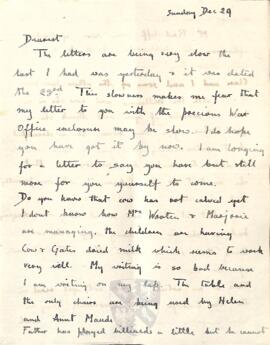 Sunday Dec 29
Dearest
The letters are being very slow the
last I had was yesterday & it was dated
the 23rd This slowness makes me fear that
my letter to you with the precious War
Office enclosure may be slow. I do hope
you have got it by now. I am longing
for a letter to say you have but still
more for you yourself to come.
Do you know that cow has not calved yet
I dont know how Mrs Wooten & Marjorie
are managing. the children are having
Cow & Gates dried milk which seems to work
very well. My writing is so bad because
I am writing on my lap. The table and
the only chairs are being used by Helen
and Aunt Maude
Father has played billiards a little but he cannot